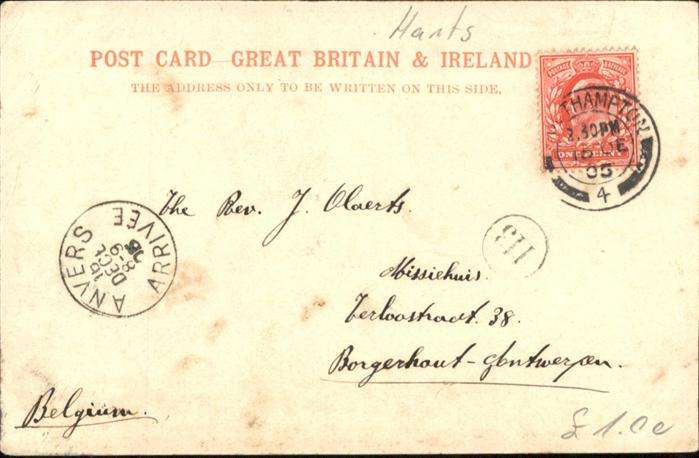 Hants
POST CARD GREAT BRITAIN & IRELAND
THE ADDRESS ONLY TO BE WRITTEN ON THIS SIDE.
THAMPTON
.30PM
DE
05
4
ONE PENNY
The Rev. J. Olaerts.
113
ANVERS
ARRIVÉE
6-8
DEC
Missiehuis.
Terloostraat. 38.
Borgerhout - Antwerpen.
Belgium.
£1.00